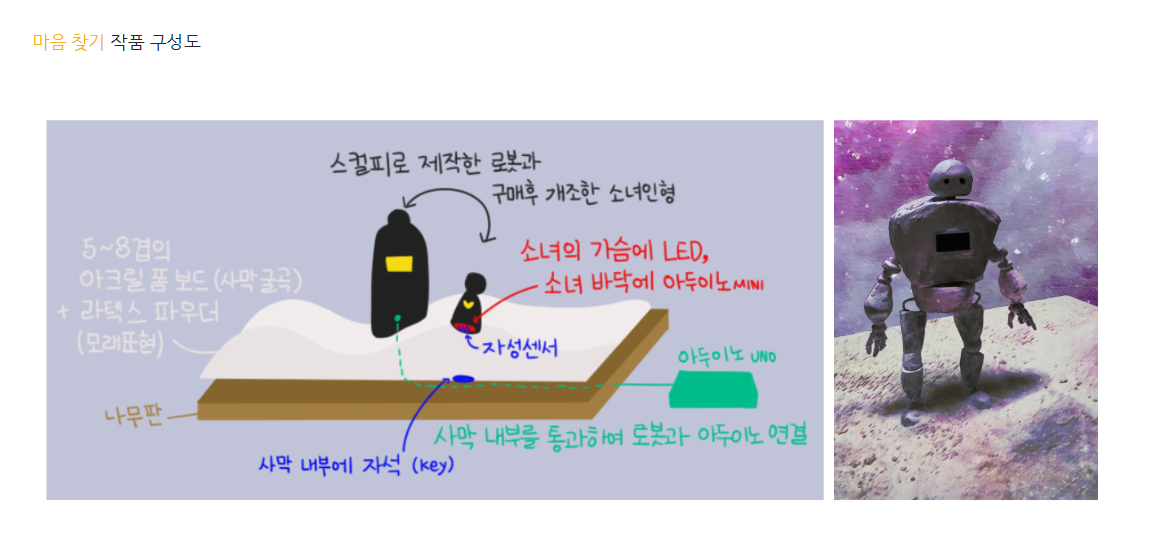 마음 찾기 작품 구성도
스컬피로 제작한 로봇과
구매후 개조한 소녀인형
5~8겹의
아크릴 폼 보드 (사막굴곡)
+ 라텍스 파우더
(모래표현)
소녀의 가슴에 LED,
소녀 바닥에 아두이노 MINI
자성센서
아두이노 UNO
나무판
사막 내부를 통과하여 로봇과 아두이노 연결
사막 내부에 자석 (key)